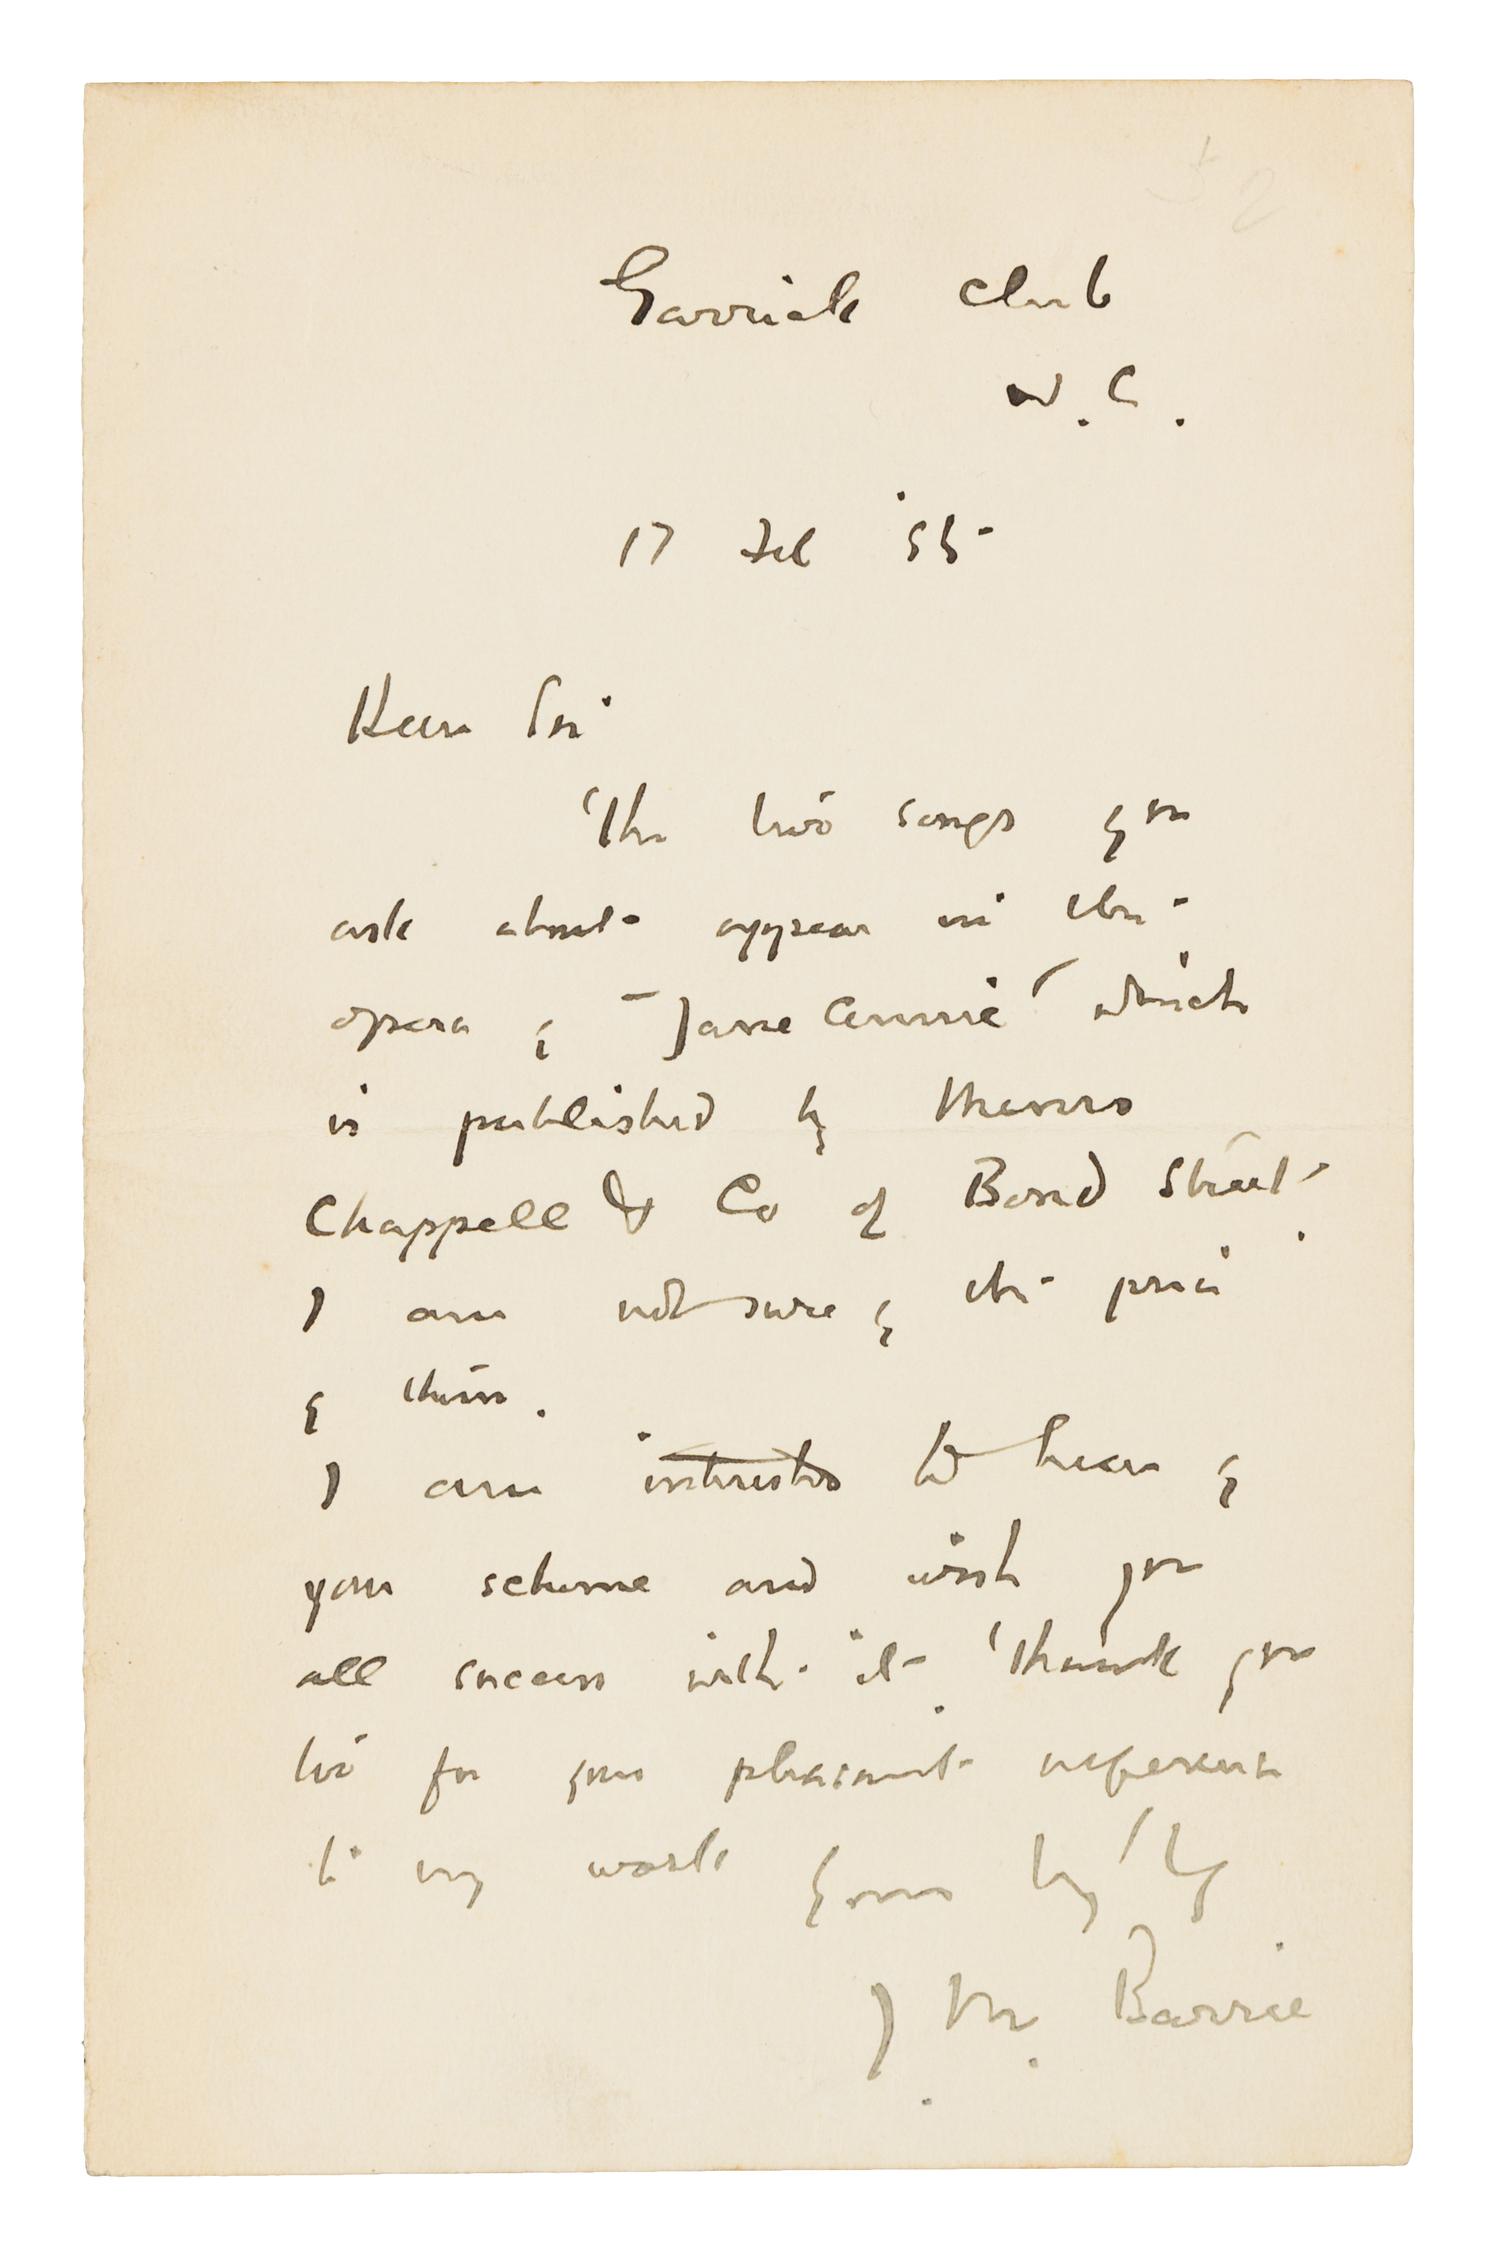 Garrick Club
W.C.
17 Feb '95
Dear Sir
The two songs you
ask about appear in the
opera of "Jane Annie" which
is published by Messrs
Chappell & Co of Bond Street.
I am not sure of the price
of them.
I am interested to hear of
your scheme and wish you
all success with it. Thank you
too for your pleasant reference
to my work Yours
J. M. Barrie